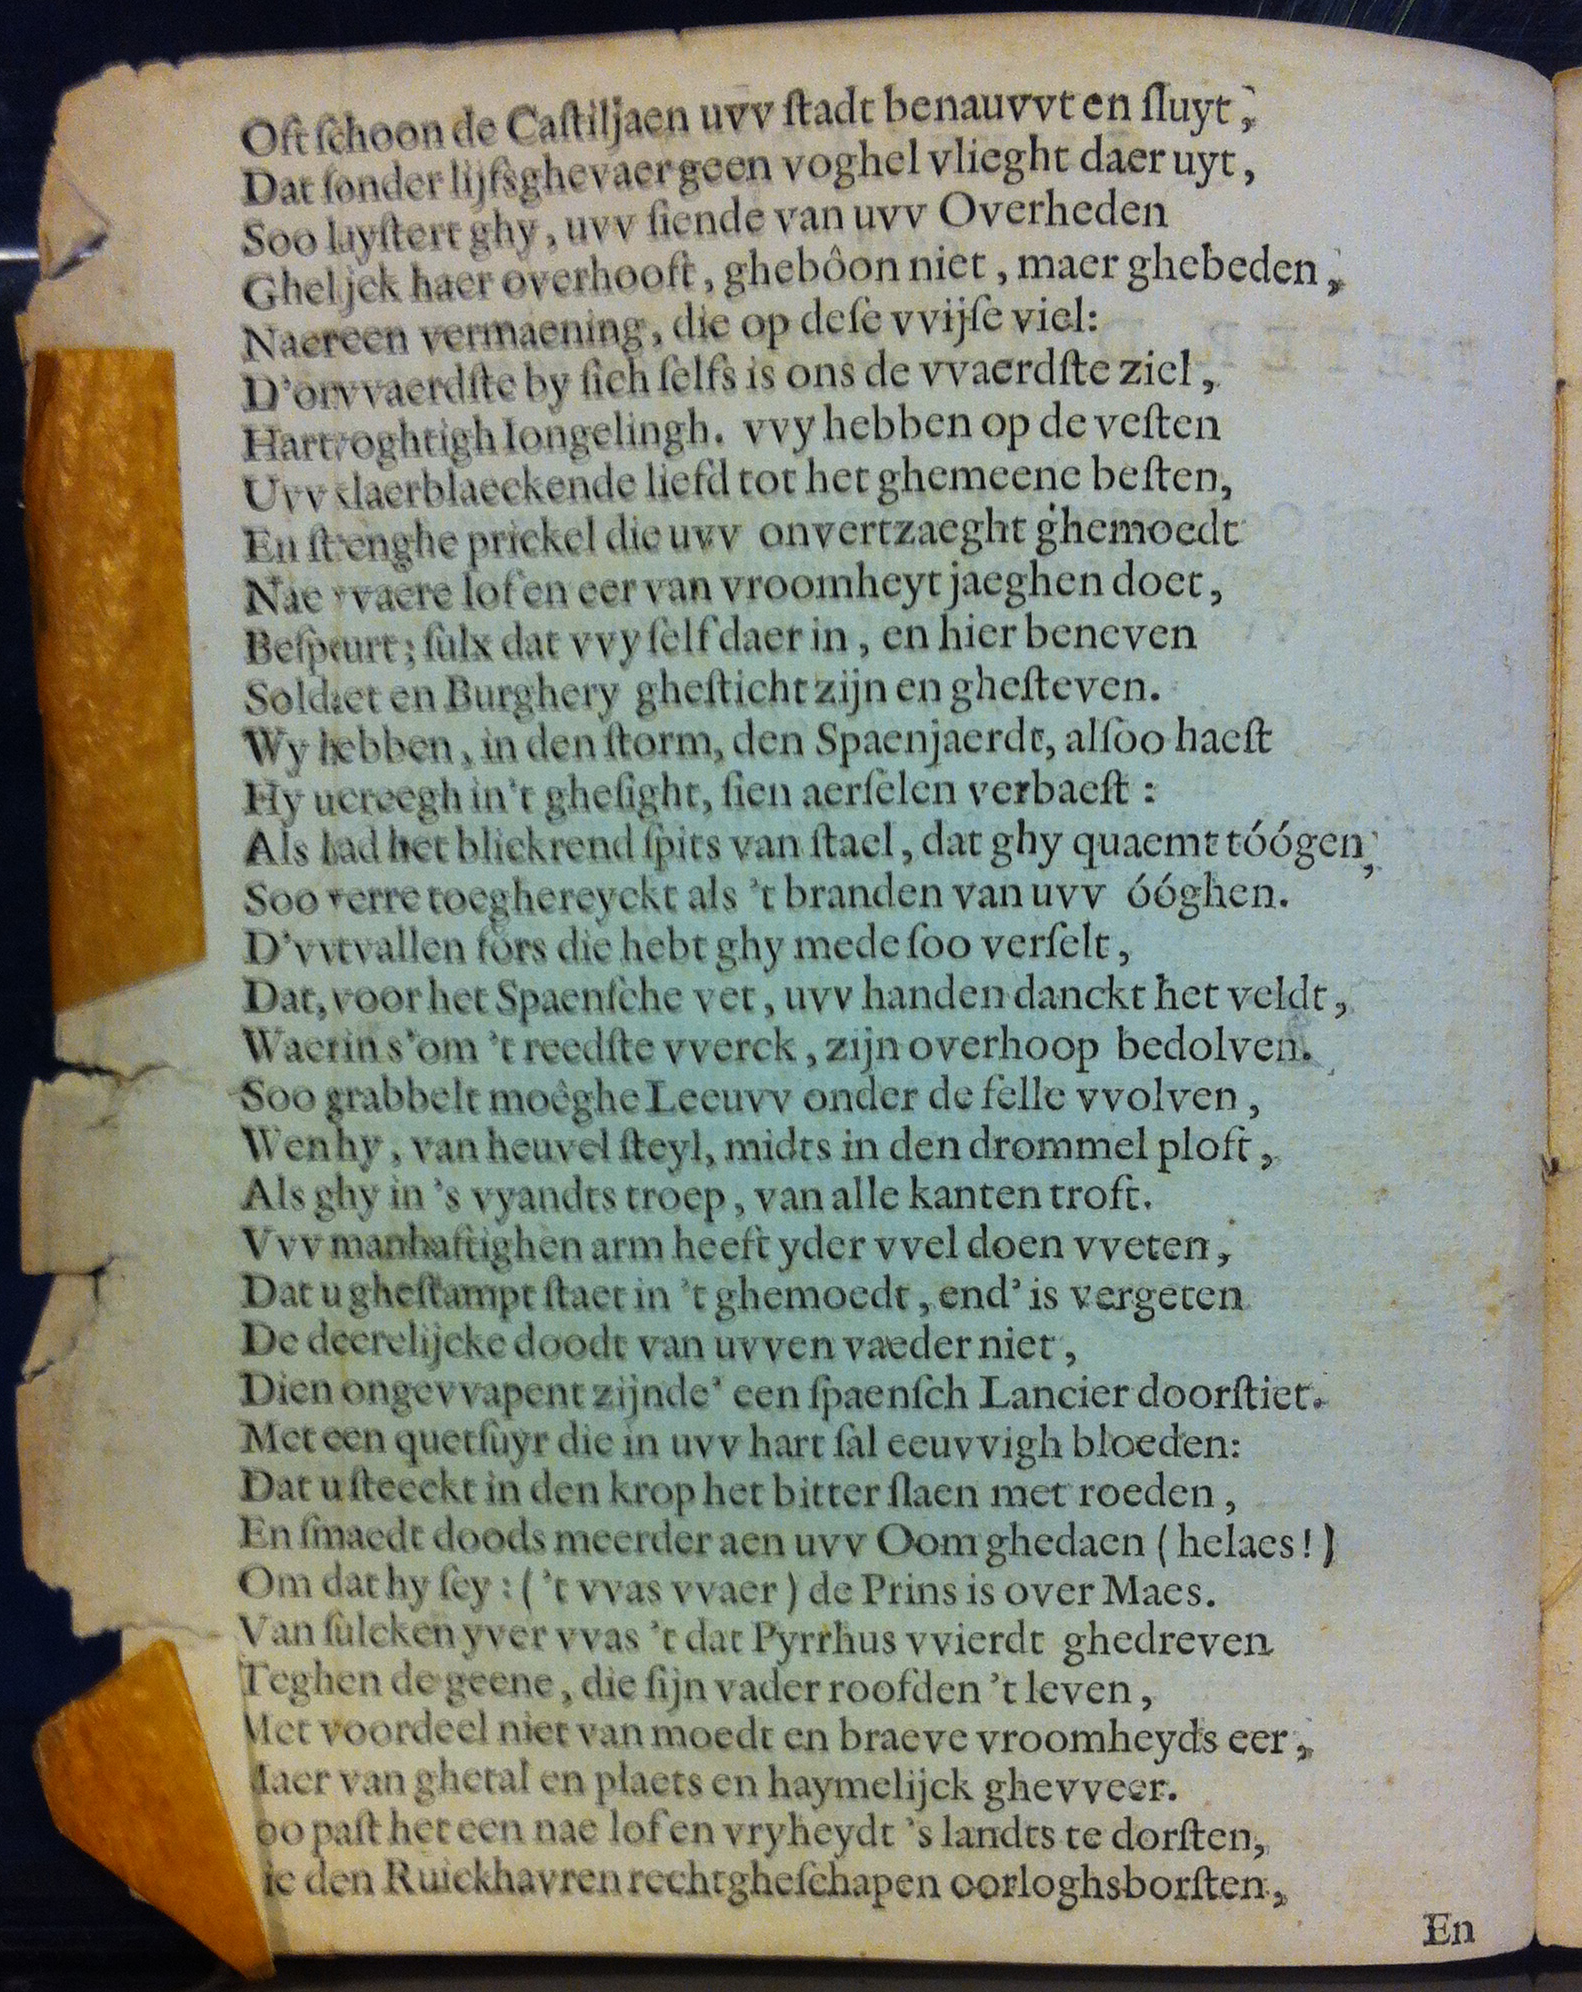 Oft ſchoon de Caſtiljaen uvv ſtadt benauvvt en ſluyt,
Dat ſonder lijfsghevaer geen voghel vlieght daer uyt,
Soo luyſtert ghy, uvv ſiende van uvv Overheden
Ghelijck haer overhooft, ghebôon niet, maer ghebeden,
Naer een vermaening, die op deſe vvijſe viel:
D'onvvaerdſte by ſich ſelfs is ons de vvaerdſte ziel,
Hartroghtigh Iongelingh. vvy hebben op de veſten
Uvv claerblaeckende liefd tot het ghemeene beſten,
En ſtrenghe prickel die uvv onvertzaeght ghemoedt
Nae vvaere lof en eer van vroomheyt jaeghen doet,
Beſpeurt; ſulx dat vvy ſelf daer in, en hier beneven
Soldaet en Burghery gheſticht zijn en gheſteven.
Wy hebben, in den ſtorm, den Spaenjaerdt, alſoo haeſt
Hy u creegh in't gheſight, ſien aerſelen verbaeſt:
Als had het blickrend ſpits van ſtael, dat ghy quaemt tóógen,
Soo verre toeghereyckt als 't branden van uvv óóghen.
D'vvtvallen fors die hebt ghy mede ſoo verſelt,
Dat, voor het Spaenſche vet, uvv handen danckt het veldt,
Waer in s'om 't reedſte vverck, zijn overhoop bedolven.
Soo grabbelt moêghe Leeuvv onder de felle vvolven,
Wen hy, van heuvel ſteyl, midts in den drommel ploft,
Als ghy in 's vyandts troep, van alle kanten troft.
Vvv manhaftighen arm heeft yder vvel doen vveten,
Dat u gheſtampt ſtaet in 't ghemoedt, end' is vergeten
De deerelijcke doodt van uvven vaeder niet,
Dien ongevvapent zijnde' een ſpaenſch Lancier doorſtiet.
Met een quetſuyr die in uvv hart ſal eeuvvigh bloeden:
Dat u ſteeckt in den krop het bitter ſlaen met roeden,
En ſmaedt doods meerder aen uvv Oom ghedaen (helaes!)
Om dat hy ſey: ('t vvas vvaer) de Prins is over Maes.
Van ſulcken yver vvas 't dat Pyrrhus vvierdt ghedreven
Teghen de geene, die ſijn vader roofden 't leven,
Met voordeel niet van moedt en braeve vroomheyds eer,
Maer van ghetal en plaets en haymelijck ghevveer.
oo paſt het een nae lof en vryheydt 's landts te dorſten,
ie den Ruickhavren rechtgheſchapen oorloghsborſten,
En